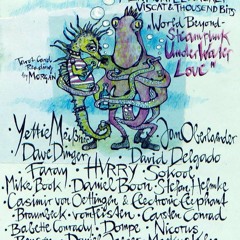 VISCAT & THOUSAND BITS
"World Beyond-
Steampunk
UnderWater
LOVE"
Tarot Card
Reading
by Morgan
Yettie Mäßner
Jan Oberländer
Dave Dinger
David Delgado
Faray · HVRRY · Sokool
Mike Book · Daniel Boon · Stefan Helmke
Casimir von Oettingen & Electronic Elephant
Braumbeck · vom Feisten · Carsten Conrad
Babette Conrady · Dompe · Nicorus